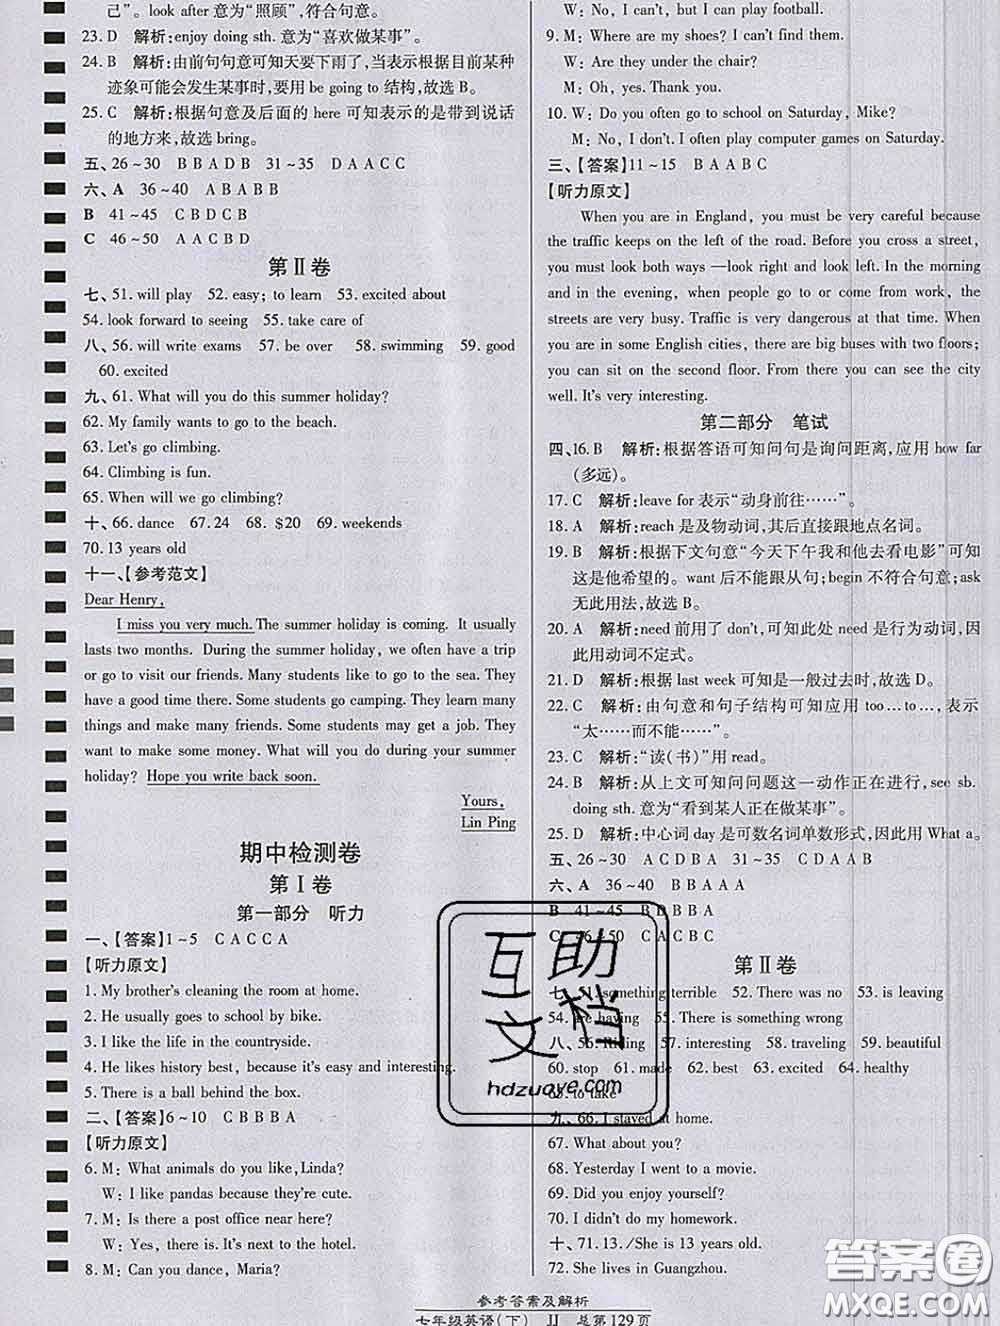 己”。look after 意为“照顾”,符合句意。
23. D 解析:enjoy doing sth. 意为“喜欢做某事”。
24. B 解析:由前句句意可知天要下雨了,当表示根据目前某种
迹象可能会发生某事时,要用 be going to 结构,故选 B。
25. C 解析:根据句意及后面的 here 可知表示的是带到说话
的地方来,故选 bring。
五、26～30 B B A D B 31～35 D A A C C
六、A 36～40 A B A B B
B 41～45 C B D C B
C 46～50 A A C B D
第Ⅱ卷
七、51. will play 52. easy; to learn 53. excited about
54. look forward to seeing 55. take care of
八、56. will write exams 57. be over 58. swimming 59. good
60. excited
九、61. What will you do this summer holiday?
62. My family wants to go to the beach.
63. Let's go climbing.
64. Climbing is fun.
65. When will we go climbing?
十、66. dance 67. 24 68. $20 69. weekends
70. 13 years old
十一、【参考范文】
Dear Henry,
I miss you very much. The summer holiday is coming. It usually
lasts two months. During the summer holiday, we often have a trip
or go to visit our friends. Many students like to go to the sea. They
have a good time there. Some students go camping. They learn many
things and make many friends. Some students may get a job. They
want to make some money. What will you do during your summer
holiday? Hope you write back soon.
Yours,
Lin Ping
期中检测卷
第Ⅰ卷
第一部分 听力
一、【答案】1～5 C A C C A
【听力原文】
1. My brother's cleaning the room at home.
2. He usually goes to school by bike.
3. I like the life in the countryside.
4. He likes history best, because it's easy and interesting.
5. There is a ball behind the box.
二、【答案】6～10 C B B B A
【听力原文】
6. M: What animals do you like, Linda?
W: I like pandas because they're cute.
7. M: Is there a post office near here?
W: Yes, there is. It's next to the hotel.
8. M: Can you dance, Maria?
W: No, I can't, but I can play football.
9. M: Where are my shoes? I can't find them.
W: Are they under the chair?
M: Oh, yes. Thank you.
10. W: Do you often go to school on Saturday, Mike?
M: No, I don't. I often play computer games on Saturday.
三、【答案】11～15 B A A B C
【听力原文】
When you are in England, you must be very careful because
the traffic keeps on the left of the road. Before you cross a street,
you must look both ways —look right and look left. In the morning
and in the evening, when people go to or come from work, the
streets are very busy. Traffic is very dangerous at that time. When
you are in some English cities, there are big buses with two floors;
you can sit on the second floor. From there you can see the city
well. It's very interesting.
第二部分 笔试
四、16. B 解析:根据答语可知问句是询问距离,应用 how far
(多远)。
17. C 解析:leave for 表示“动身前往……”。
18. A 解析:reach 是及物动词,其后直接跟地点名词。
19. B 解析:根据下文句意“今天下午我和他去看电影”可知
这是他希望的。want 后不能跟从句;begin 不符合句意;ask
无此用法,故选 B。
20. A 解析:need 前用了 don't,可知此处 need 是行为动词,因
此用动词不定式。
21. D 解析:根据 last week 可知是一般过去时,故选 D。
22. C 解析:由句意和句子结构可知应用 too…to…,表示
“太……而不能……”。
23. C 解析:“读(书)”用 read。
24. B 解析:从上文可知问问题这一动作正在进行,see sb.
doing sth. 意为“看到某人正在做某事”。
25. D 解析:中心词 day 是可数名词单数形式,因此用 What a。
五、26～30 A C D B A 31～35 C D A A B
六、A 36～40 B B A A A
B 41～45 B D B B A
C 46～50 A C D B A
第Ⅱ卷
七、51. something terrible 52. There was no 53. is leaving
54. are having 55. There is something wrong
八、56. Riding 57. interesting 58. traveling 59. beautiful
60. stop 61. made 62. best 63. excited 64. healthy
65. to take
九、66. I stayed at home.
67. What about you?
68. Yesterday I went to a movie.
69. Did you enjoy yourself?
70. I didn't do my homework.
十、71. 13. /She is 13 years old.
72. She lives in Guangzhou.
互助
文档
hdzuoye.com
答案圈
MXQE.COM
参考答案及解析
七年级英语(下) JJ 总第129页